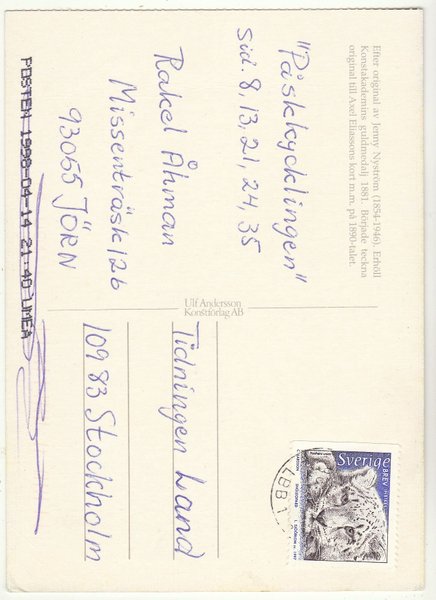 Efter original av Jenny Nyström (1854-1946). Erhöll
Konstakademins guldmedalj 1881. Började teckna
original till Axel Eliassons kort m.m. på 1890-talet.
"Påskkycklingen"
sid. 8, 13, 21, 24, 35
Rakel Åhman
Missenträsk 126
93055 JÖRN
POSTEN 1998-04-14 21:40 UMEA
Ulf Andersson
Konstförlag AB
Tidningen Land
109 83 Stockholm
Sverige
BREV